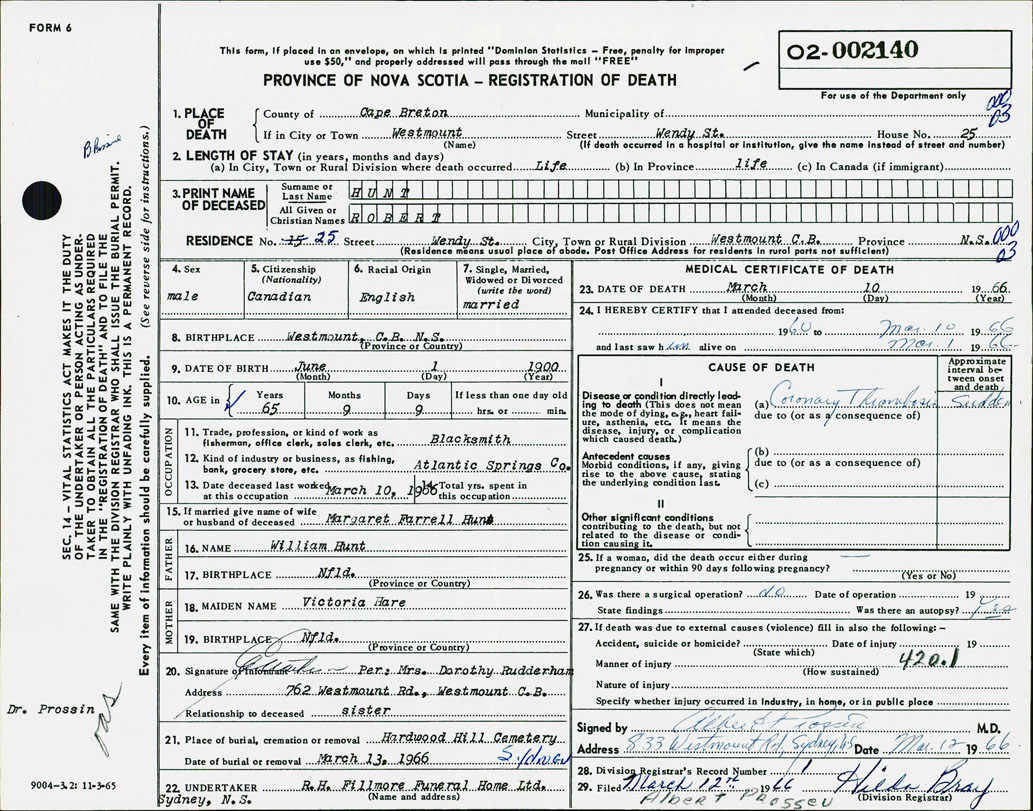 FORM 6
This form, if placed in an envelope, on which is printed "Dominion Statistics – Free, penalty for improper
use $50," and properly addressed will pass through the mail "FREE"
PROVINCE OF NOVA SCOTIA – REGISTRATION OF DEATH
02-002140
For use of the Department only
000
03
1. PLACE OF DEATH
County of Cape Breton Municipality of
If in City or Town Westmount Street Wendy St. House No. 25
(Name) (If death occurred in a hospital or institution, give the name instead of street and number)
2. LENGTH OF STAY (in years, months and days)
(a) In City, Town or Rural Division where death occurred Life (b) In Province life (c) In Canada (if immigrant)
3. PRINT NAME OF DECEASED
Surname or Last Name HUNT
All Given or Christian Names ROBERT
RESIDENCE No. 15 25 Street Wendy St. City, Town or Rural Division Westmount C.B. Province N.S. 000
03
(Residence means usual place of abode. Post Office Address for residents in rural parts not sufficient)
4. Sex
male
5. Citizenship
(Nationality)
Canadian
6. Racial Origin
English
7. Single, Married,
Widowed or Divorced
(write the word)
married
8. BIRTHPLACE Westmount, C.B. N.S.
(Province or Country)
9. DATE OF BIRTH June 1 1900
(Month) (Day) (Year)
10. AGE in Years Months Days If less than one day old
65 9 9 hrs. or min.
OCCUPATION
11. Trade, profession, or kind of work as
fisherman, office clerk, sales clerk, etc. Blacksmith
12. Kind of industry or business, as fishing,
bank, grocery store, etc. Atlantic Springs Co.
13. Date deceased last worked
at this occupation March 10, 1966
14. Total yrs. spent in
this occupation
15. If married give name of wife
or husband of deceased Margaret Farrell Hunt
FATHER
16. NAME William Hunt
17. BIRTHPLACE Nfld.
(Province or Country)
MOTHER
18. MAIDEN NAME Victoria Hare
19. BIRTHPLACE Nfld.
(Province or Country)
20. Signature of Informant Per: Mrs. Dorothy Rudderham
Address 762 Westmount Rd., Westmount C.B.
Relationship to deceased sister
21. Place of burial, cremation or removal Hardwood Hill Cemetery
Date of burial or removal March 13, 1966 Sydney
22. UNDERTAKER R.H. Fillmore Funeral Home Ltd.
Sydney, N.S. (Name and address)
MEDICAL CERTIFICATE OF DEATH
23. DATE OF DEATH March 10 1966
(Month) (Day) (Year)
24. I HEREBY CERTIFY that I attended deceased from:
1960 to Mar. 10 1966
and last saw him alive on Mar. 1 1966
CAUSE OF DEATH
Approximate
interval be-
tween onset
and death
I
Disease or condition directly lead-
ing to death (This does not mean
the mode of dying, e.g., heart fail-
ure, asthenia, etc. It means the
disease, injury, or complication
which caused death.)
(a) Coronary Thrombosis Sudden
due to (or as a consequence of)
Antecedent causes
Morbid conditions, if any, giving
rise to the above cause, stating
the underlying condition last.
(b)
due to (or as a consequence of)
(c)
II
Other significant conditions
contributing to the death, but not
related to the disease or condi-
tion causing it.
25. If a woman, did the death occur either during
pregnancy or within 90 days following pregnancy?
(Yes or No)
26. Was there a surgical operation? no Date of operation 19
State findings Was there an autopsy? Yes
27. If death was due to external causes (violence) fill in also the following: –
Accident, suicide or homicide? Date of injury 19
(State which)
Manner of injury 420.1
(How sustained)
Nature of injury
Specify whether injury occurred in Industry, in home, or in public place
Signed by M.D.
Address 833 Westmount Rd, Sydney NS Date Mar. 12 1966.
28. Division Registrar's Record Number 1
29. Filed March 12th 1966 Hilda Bray
(Division Registrar)
Albert Prossin
SEC. 14 – VITAL STATISTICS ACT MAKES IT THE DUTY
OF THE UNDERTAKER OR PERSON ACTING AS UNDER-
TAKER TO OBTAIN ALL THE PARTICULARS REQUIRED
IN THE "REGISTRATION OF DEATH" AND TO FILE THE
SAME WITH THE DIVISION REGISTRAR WHO SHALL ISSUE THE BURIAL PERMIT.
WRITE PLAINLY WITH UNFADING INK. THIS IS A PERMANENT RECORD.
Every item of information should be carefully supplied. (See reverse side for instructions.)
Dr. Prossin
9004-3.2: 11-3-65